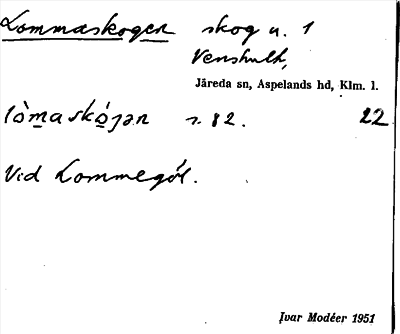 Lommaskogen skog u. 1
Venshult,
Järeda sn, Aspelands hd, Klm. l.
lòmaskógən s. 82. 22
Vid Lommegöl.
Ivar Modéer 1951